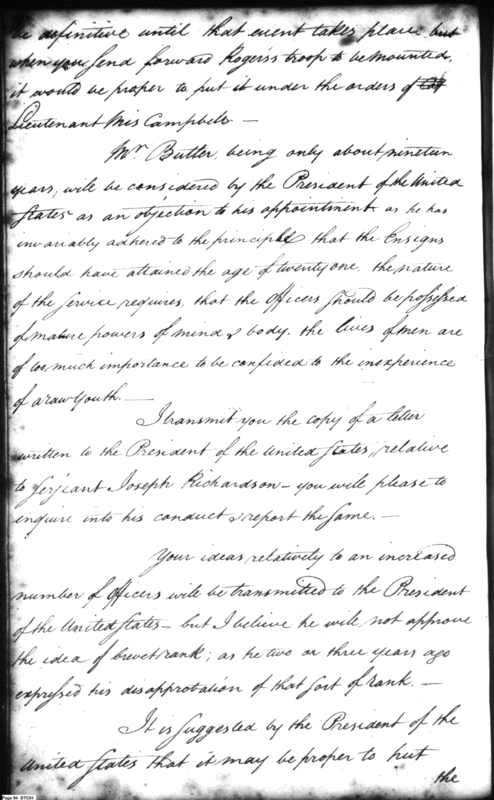 be definitive until that event takes place but
when you send forward Rogers's troop to be mounted,
it would be proper to put it under the orders of
Lieutenant Mis Campbell. —
Mr Butler, being only about nineteen
years, will be considered by the President of the United
States as an objection to his appointment as he has
invariably adhered to the principle that the Ensigns
should have attained the age of twenty one. the nature
of the service requires, that the Officers should be possessed
of mature powers of mind & body. the lives of men are
of too much importance to be confided to the inexperience
of a raw Youth. —
I transmit you the copy of a letter
written to the President of the United States, relative
to Serjeant Joseph Richardson — you will please to
enquire into his conduct & report the same. —
Your ideas, relatively to an increased
number of Officers will be transmitted to the President
of the United States — but I believe he will not approve
the idea of brevet rank; as he two or three years ago
expressed his disapprobation of that sort of rank. —
It is suggested by the President of the
United States that it may be proper to hut
the
Page 94 DTC01